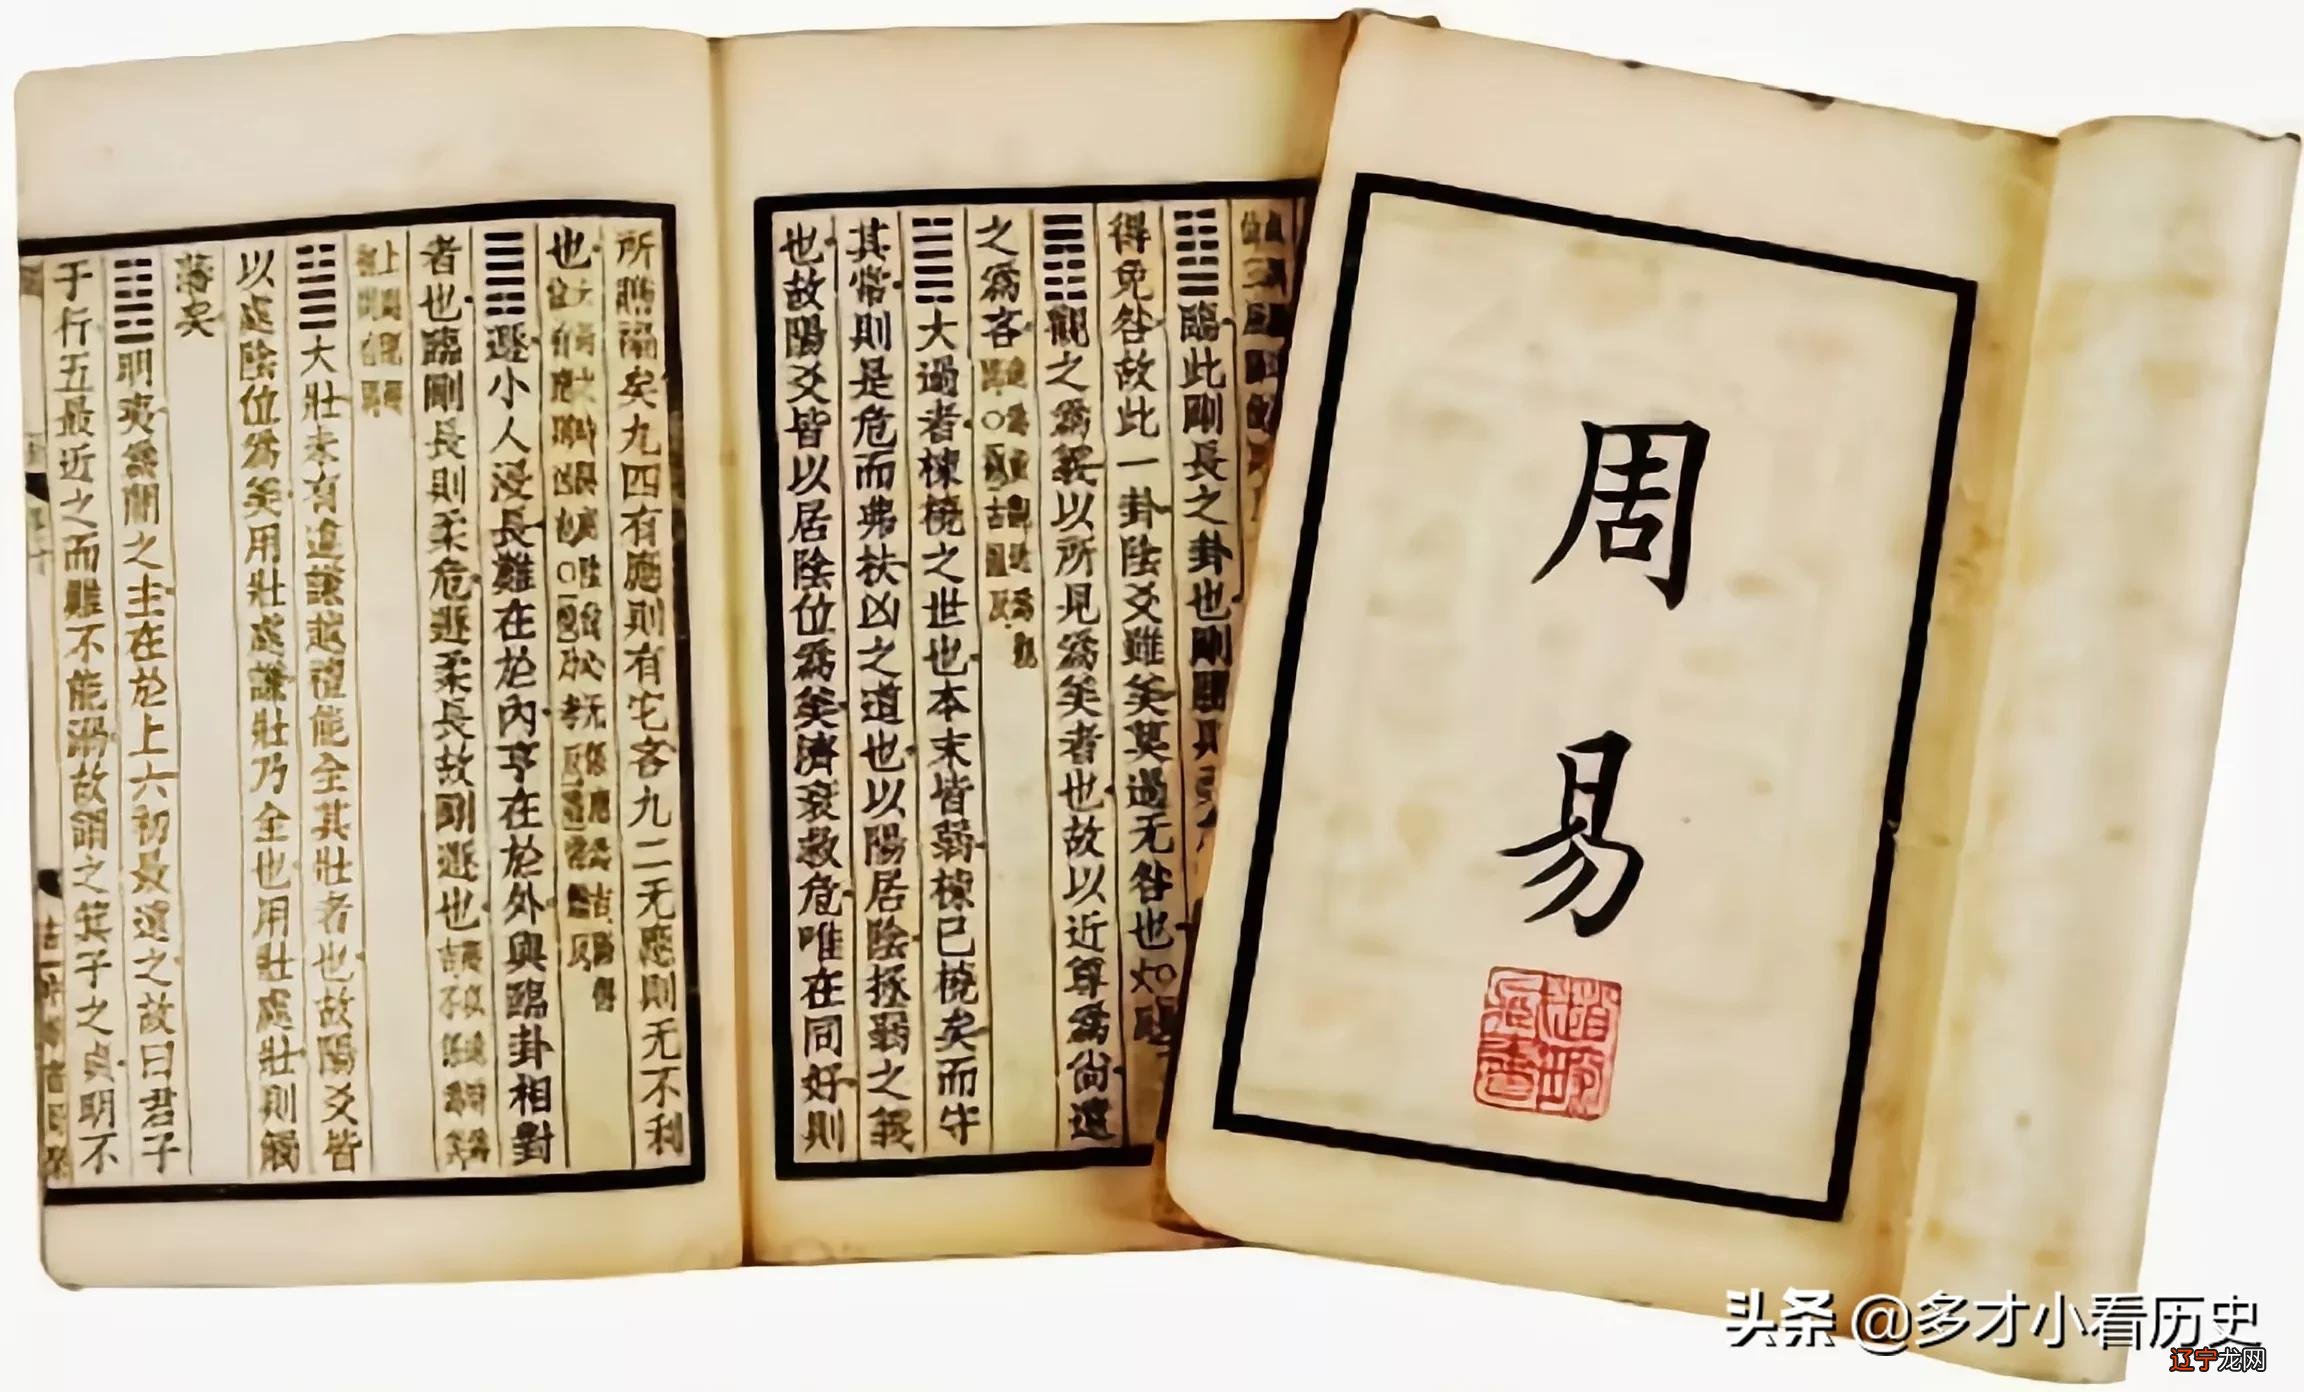 周易
䷒臨此剛長之卦也剛勝則柔
得免咎故此一卦陰爻雖美莫過无咎也
䷓觀之爲義以所見爲美者也故以近尊爲尚遠
之爲吝
䷛大過者棟橈之世也本末皆弱棟已橈矣而守
其常則是危而弗扶凶之道也以陽居陰拯弱之義
也故陽爻皆以居陰位爲美濟衰救危唯在同好則
所贍褊矣九四有應則有它吝九二无應則无不利
也
䷠遯小人浸長難在於內亨在於外與臨卦相對
者也臨剛長則柔危遯柔長故剛遯也
䷡大壯未有違謙越禮能全其壯者也故陽爻皆
以處陰位爲美用壯處謙壯乃全也用壯處壯則觸
藩矣
䷣明夷爲闇之主在於上六初最遠之故曰君子
于行五最近之而難不能溺故謂之箕子之貞明不
头条 @多才小看历史
辽宁龙网